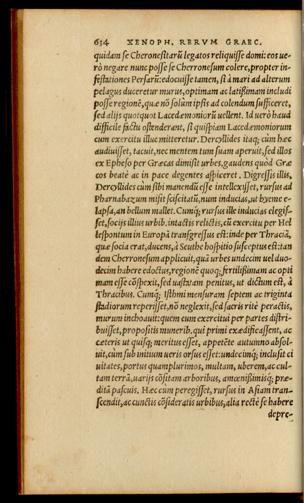 634 XENOPH. RERVM GRAEC.
quidam se Cheronesitarũ legatos reliquisse domi: eos ue-
rò negare nunc posse se Cherronesum colere, propter in-
festationes Persarũ: edocuisse tamen, si à mari ad alterum
pelagus duceretur murus, optimam ac latißimam includi
posse regionẽ, quæ nõ solùm ipsis ad colendum sufficeret,
sed alijs quotquot Lacedæmoniorũ uellent. Id uerò haud
difficile factu ostenderant, si quispiam Lacedæmoniorum
cum exercitu illuc mitteretur. Dercyllides itaq; cùm hæc
audiuisset, tacuit, nec mentem tum suam aperuit, sed illos
ex Epheso per Græcas dimisit urbes, gaudens quòd Græ
cos beatè ac in pace degentes aspiceret. Digressis illis,
Dercyllides cùm sibi manendũ esse intellexisset, rursus ad
Pharnabazum misit sciscitatũ, num inducias, ut hyeme e-
lapsa, an bellum mallet. Cumq; rursus ille inducias elegis-
set, socijs illius urbib. intactis relictis, cũ exercitu per Hel
lespontum in Europã transgressus est: inde per Thraciã,
quæ socia erat, ducens, à Seuthe hospitio susceptus est: tan
dem Cherronesum applicuit, quã urbes undecim uel duo-
decim habere edoctus, regionẽ quoq; fertilißimam ac opti
mam esse cõspexit, sed uastatam penitus, ut dictum est, à
Thracibus. Cumq; Isthmi mensuram septem ac triginta
stadiorum reperisset, nõ neglexit, sed sacris ritè peractis,
murum inchoauit: quem cum exercitui per partes distri-
buisset, propositis munerib. qui primi exædificassent, ac
cæteris ut quisq; meritus esset, appetẽte autumno absol-
uit, cùm sub initium ueris orsus esset: undecimq; inclusit ci
uitates, portus quamplurimos, multam, uberem, ac cul-
tam terrã, uarijs cõsitam arboribus, amœnißimisq; præ-
ditã pascuis. Hæc cum peregisset, rursus in Asiam tran-
scendit, ac cunctis cõsideratis urbibus, alia rectè se habere
depre-